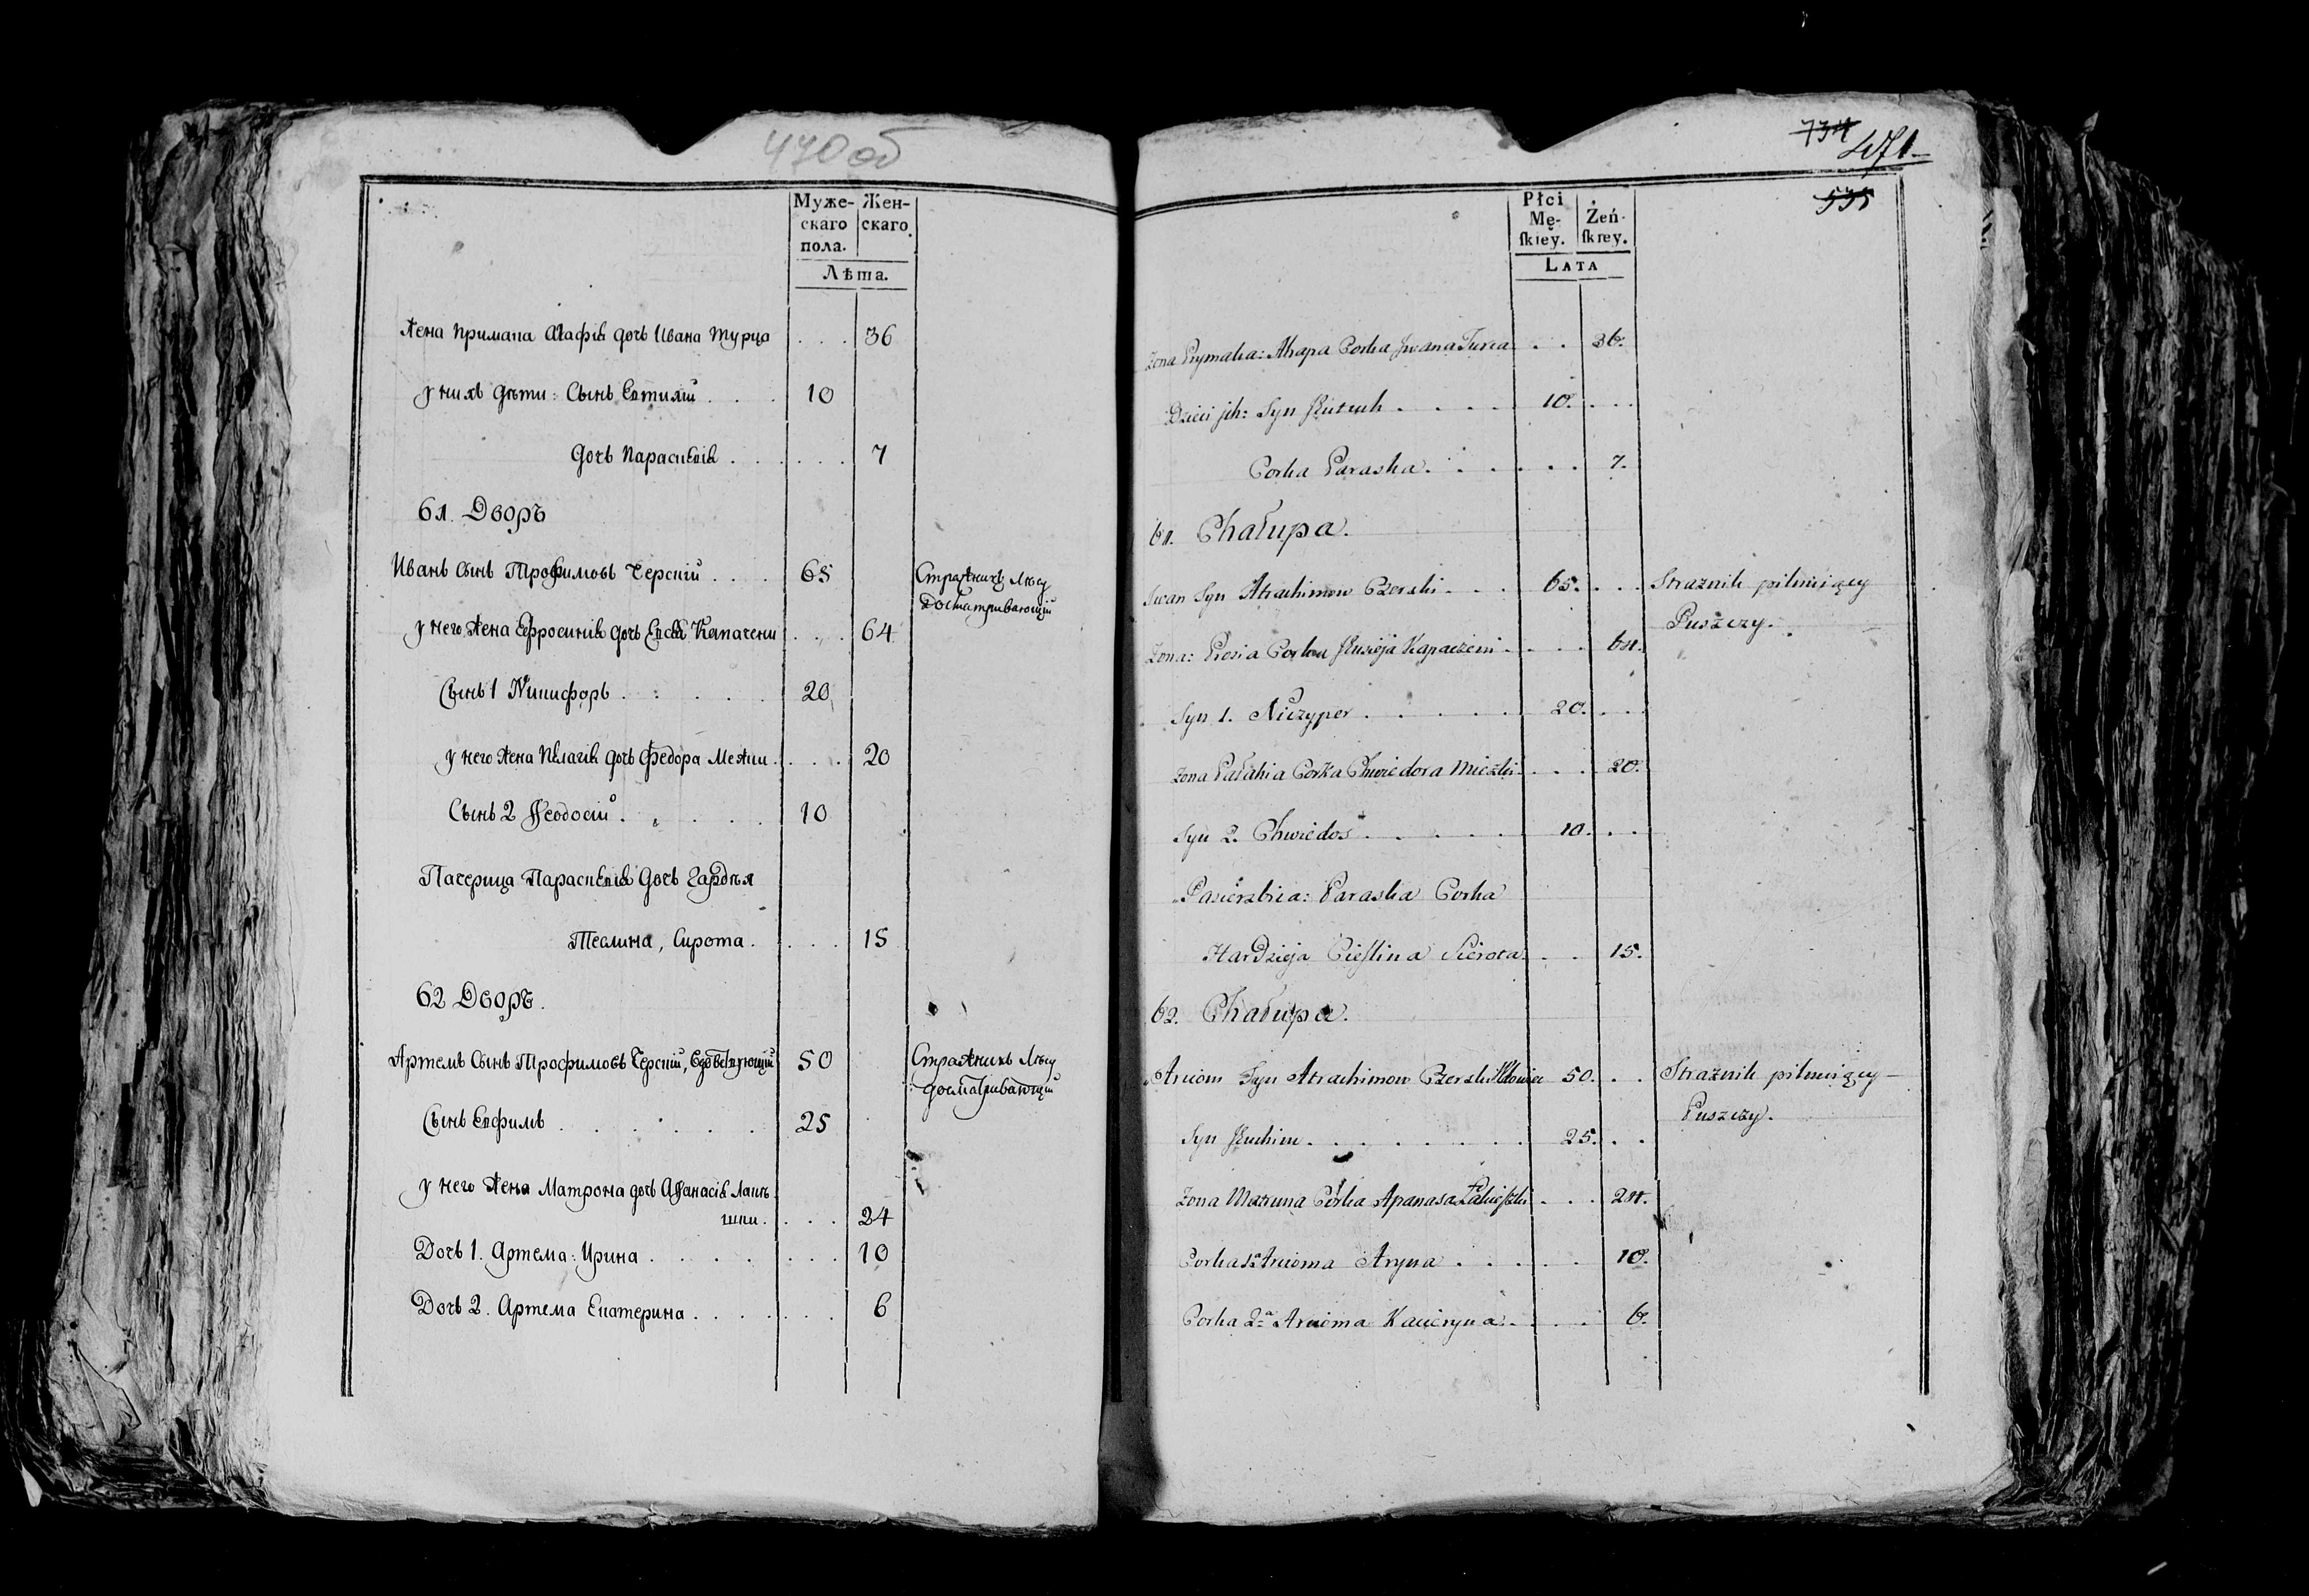 470 об
Муже-
скаго
пола.
Жен-
скаго.
Лѣта.
Жена Примака Агафія дочь Ивана Турца . . . 36
у нихъ дѣти: Сынъ Евтихій . . . 10
дочь Параскевія . . . 7
61. Дворъ
Иванъ сынъ Трофимовъ Черскій . . . 65
Стражникъ лѣсу
досматривающій
у него жена Ефросинія дочь Евсѣя Капачени . . . 64
Сынъ 1 Никифоръ . . . 20
у него жена Пелагія дочь Федора Межии . . . 20
Сынъ 2 Феодосій . . . 10
Пачерица Параскевія дочь Гардѣя
Теслина, Сирота . . . 15
62 Дворъ.
Артемъ сынъ Трофимовъ Черскій, вдовствующій 50
Стражникъ лѣсу
досматривающій
Сынъ Евфимъ . . . 25
у него жена Матрона дочь Афанасія Лакѣ-
шки . . . 24
Дочь 1. Артема: Ирина . . . 10
Дочь 2. Артема Екатерина . . . 6
734
471
535
Płci
Mę-
ſkiey.
Żeń-
ſkiey.
LATA
Zona Prymaka: Ahapa Corka Jwana Turca . . 36.
Dzieci jch: Syn Jeutuch . . . 10. . .
Corka Paraska . . . 7.
61. Chałupa.
Jwan Syn Atrachimow Czerski . . . 65. . .
Straznik pilnuiący
Puszczy.
Zona: Prosia Corka Jeusieja Kapaczeni . . . 64.
Syn 1. Niczyper . . . 20. . .
Zona Pałahia Corka Chwiedora Mieżki . . . 20.
Syn 2. Chwiedos . . . 10. . .
Pasierzbica: Paraska Corka
Hardzieja Cieſlina Sierota . . 15.
62. Chałupa.
Arciom Syn Atrachimow Czerski Wdowiec 50. . .
Straznik pilnuiący
Puszczy.
Syn Jeuchim . . . 25. . .
Zona Matruna Corka Apanasa Łakieſzki . . . 24.
Corka 1a Arcioma Aryna . . . 10.
Corka 2a Arcioma Kacieryna . . . 6.